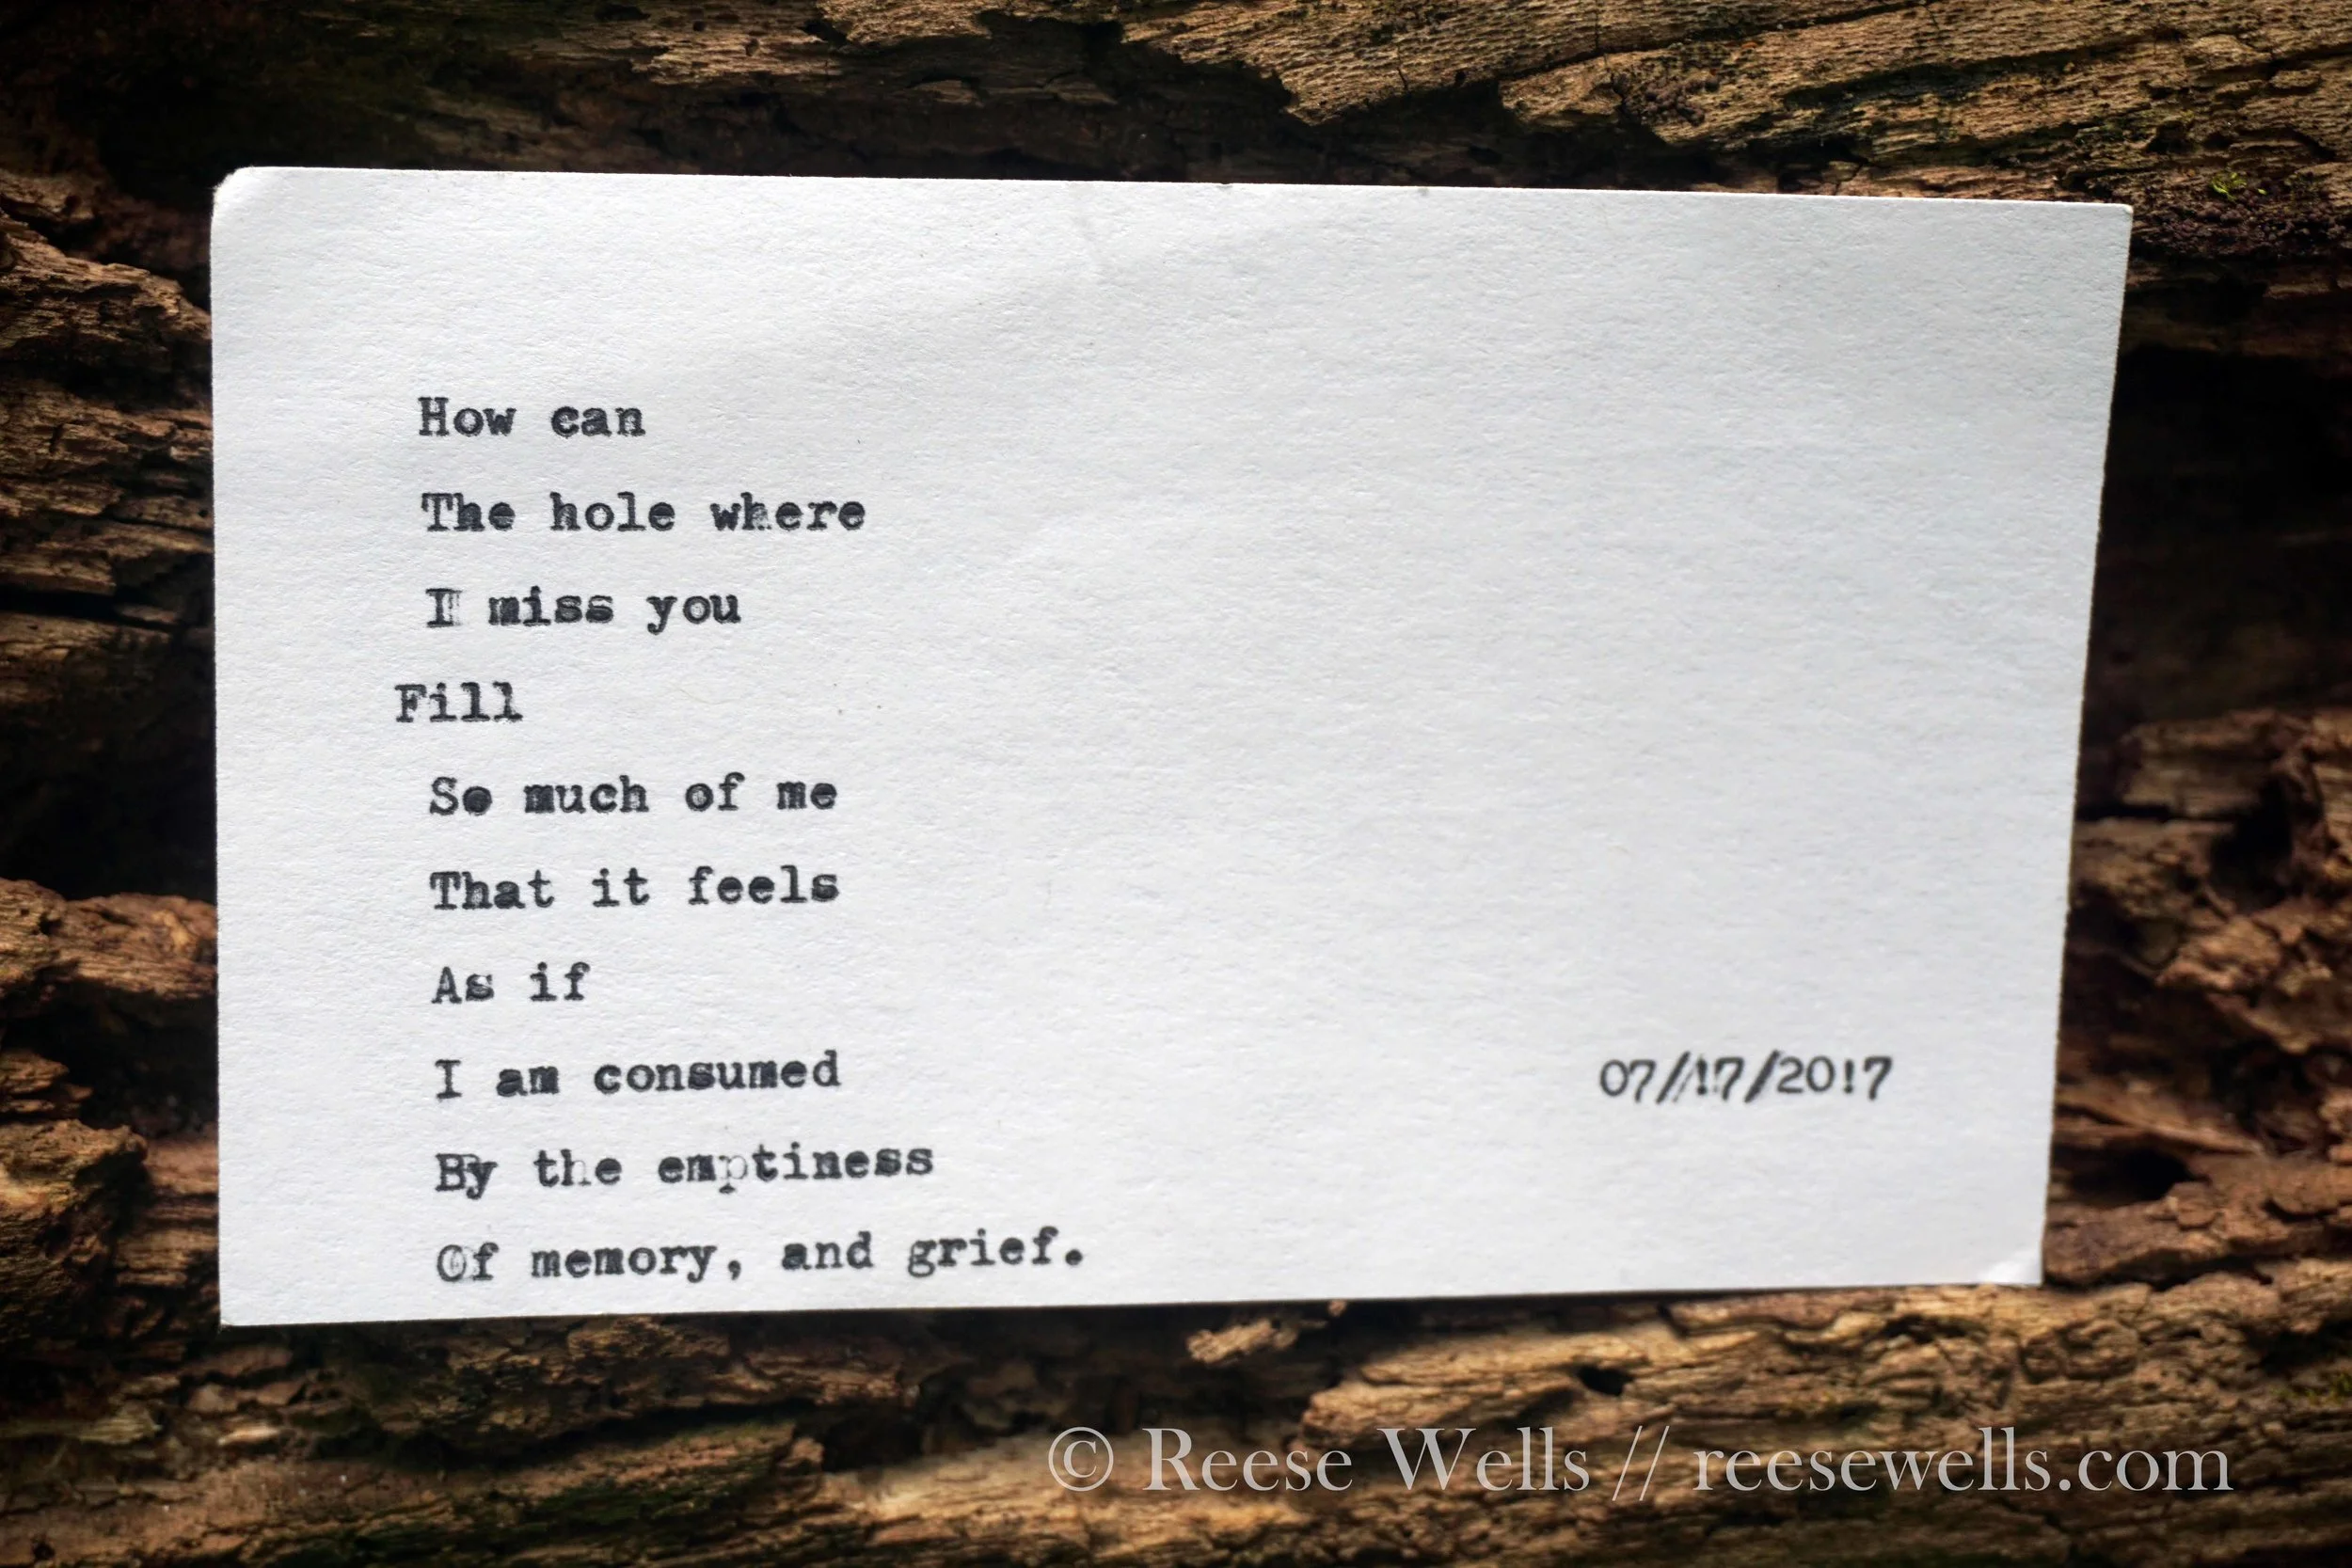 How can
The hole where
I miss you
Fill
So much of me
That it feels
As if
I am consumed
By the emptiness
Of memory, and grief.
07/17/2017
© Reese Wells // reesewells.com